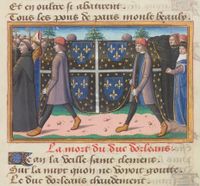 Et en oultre se abaturent
Tous les pons de paris moult beaulx
La mort du duc dorleans
Lan la veille saint clement
Sur la nuyt quon ne voyt goutte
Le duc dorleans chaudement